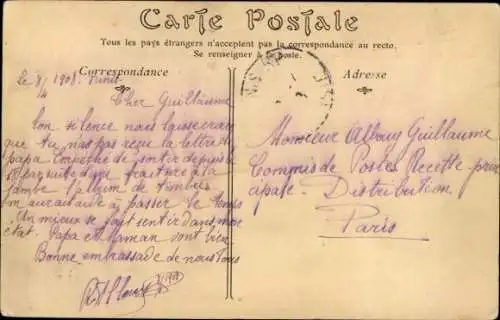 Carte Postale
Tous les pays étrangers n'acceptent pas la correspondance au recto.
Se renseigner à la poste.
Correspondance
Adresse
le 8/4 1908.
Cher Guillaume
ton silence nous laisse croire
que tu n'as pas reçu la lettre de
Papa. Empêché de sortir depuis le
par suite d'une à la
jambe l'album de timbres
m'aurait aidé à passer le temps
Un mieux se fait sentir dans mon
état. Papa et Maman sont bien
Bonne embrassade de nous tous
Monsieur Albouy Guillaume
Commis de Postes Recette prin
cipale. Distribution
Paris